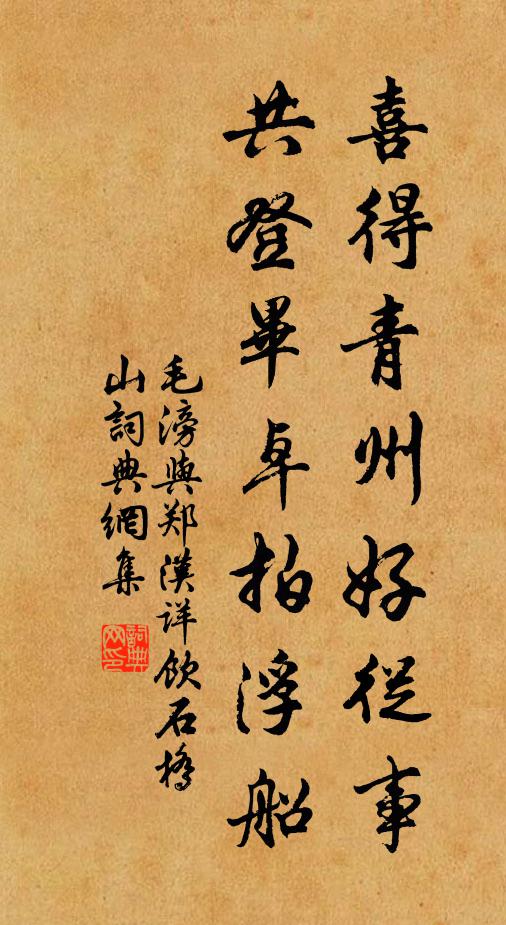 喜得青州好從事
共登畢卓拍浮船
毛滂與郑漢詳飲石橋
山詞典網集
詞典网印